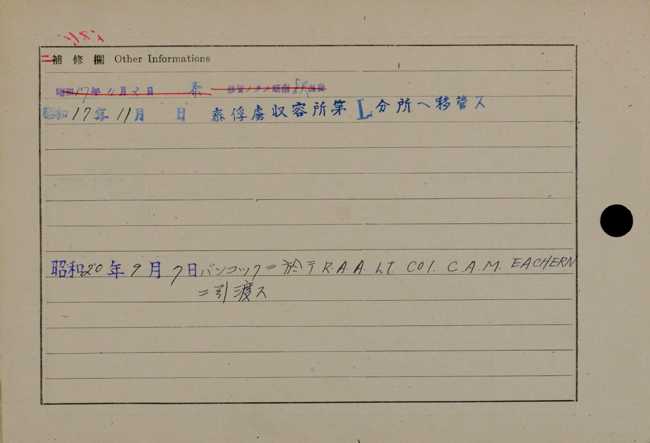 補修欄 Other Informations
昭和17年11月 日 泰俘虜収容所第 L 分所ヘ移管ス
昭和20年9月7日バンコックニ於テR.A.A. LT COl. C.A.M. EACHERN
ニ引渡ス